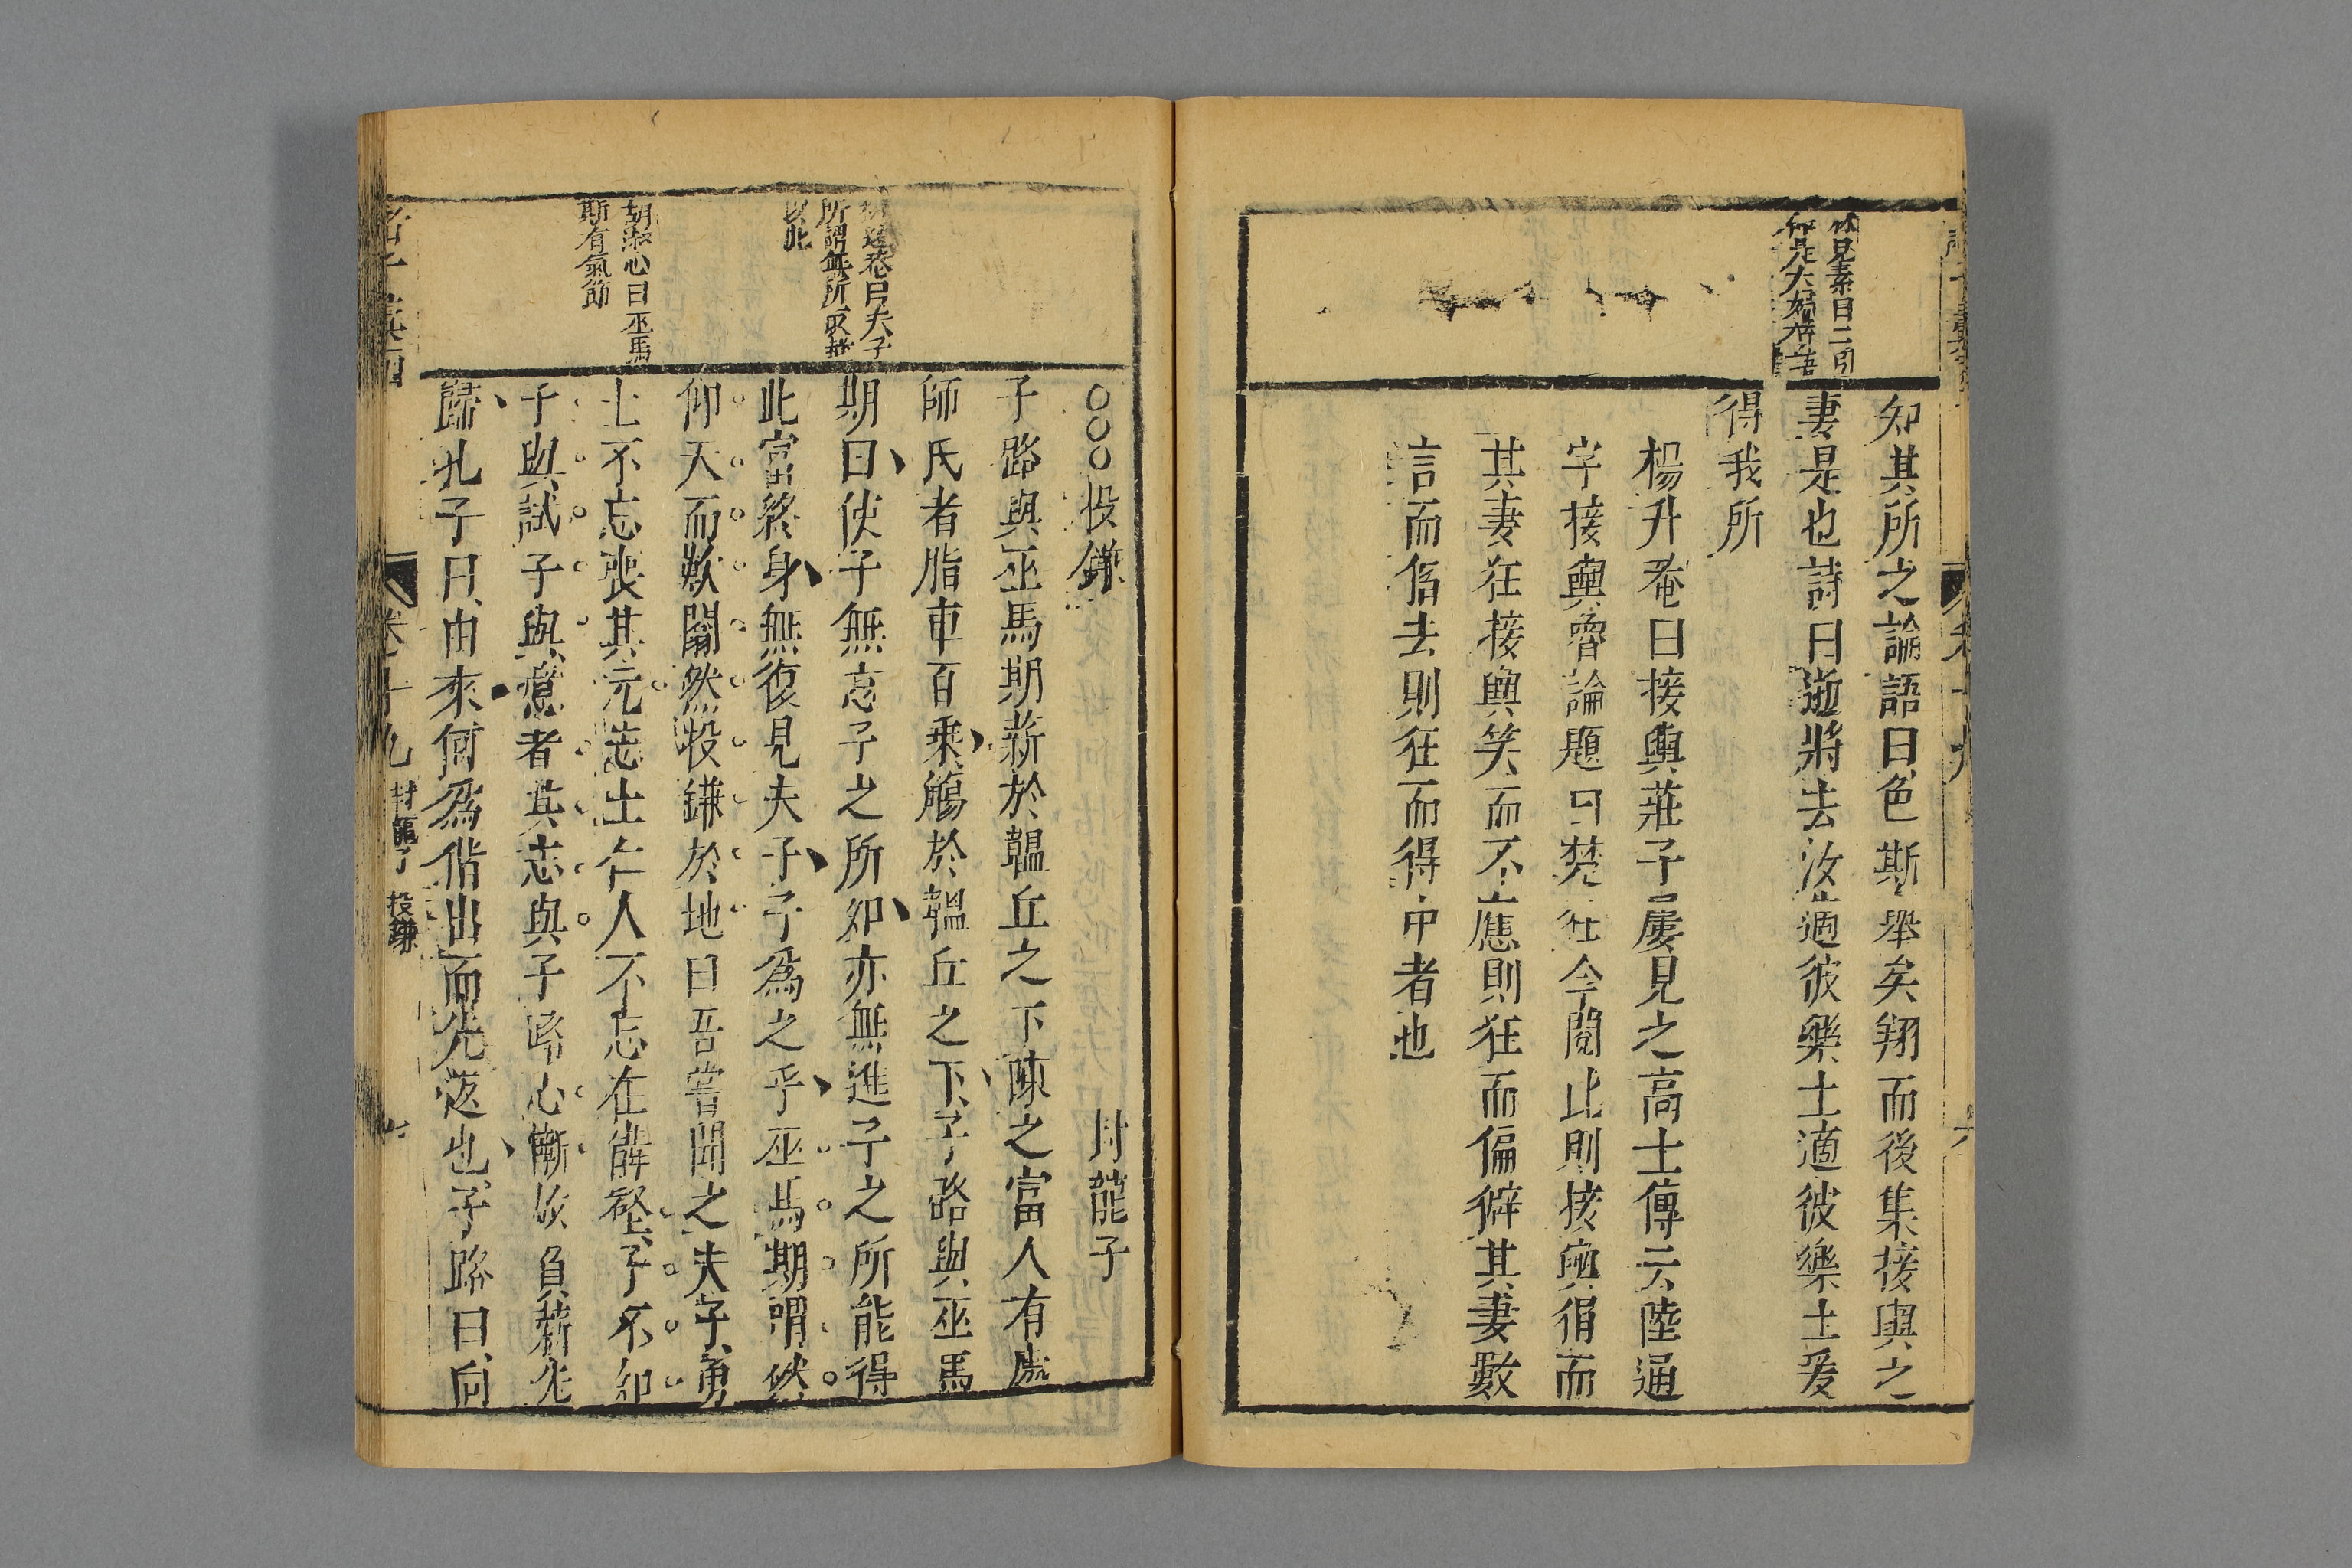 林見素曰二引
知其所之論語曰色斯舉矣翔而後集接輿之
妻是也詩曰逝將去汝適彼樂土適彼樂土爰
得我所
楊升菴曰接輿莊子屢見之高士傳云陸通
字接輿魯論題曰楚狂今閱此則接輿狷而
其妻狂接輿笑而不應則狂而偏僻其妻數
言而偕去則狂而得中者也
○○○投鎌
封龍子
子路與巫馬期薪於韞丘之下陳之富人有處
師氏者脂車百乘觴於韞丘之下子路與巫馬
期曰使子無忘子之所知亦無進子之所能得
此富終身無復見夫子子為之乎巫馬期喟然
仰天而歎闟然投鎌於地曰吾嘗聞之夫子勇
士不忘喪其元志士仁人不忘在溝壑子不知
子與試子與意者其志與子路心慚故負薪先
歸孔子曰由來何為偕出而先返也子路曰向
所謂無所取材
以此
胡淑心曰巫馬
斯有氣節
卷十九
封龍子
投鎌